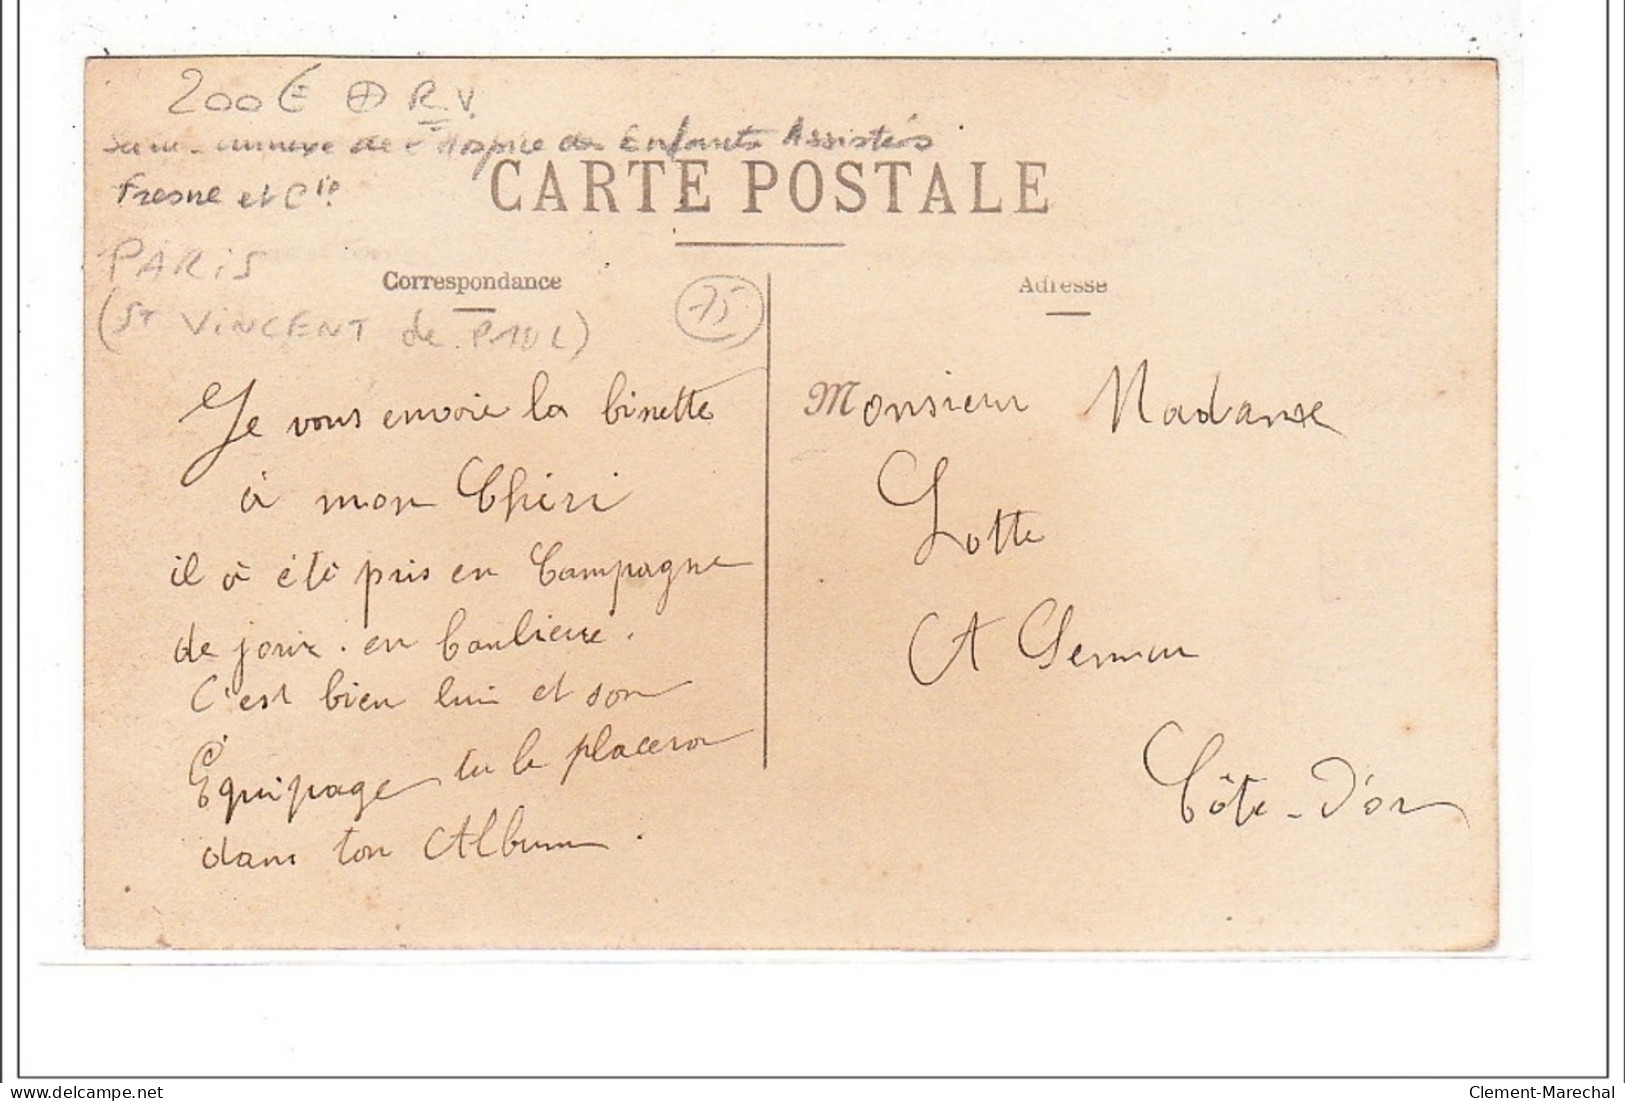 200€ ⊕ R.V.
annexe de l'Hospice des Enfants Assistés
Fresne et Cie
CARTE POSTALE
PARIS
Correspondance
Adresse
(ST VINCENT de PAUL)
75
Je vous envoie la binette
à mon Chéri
il à été pris en Campagne
de jouix. en banlieue.
C'est bien lui et son
Équipage tu le placera
dans ton Album.
Monsieur Madame
Lotte
A Semur
Côte-d'or
Clement-Marechal